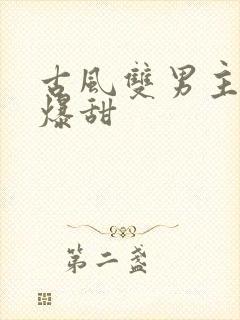 古風雙男主
爆甜
第二盞